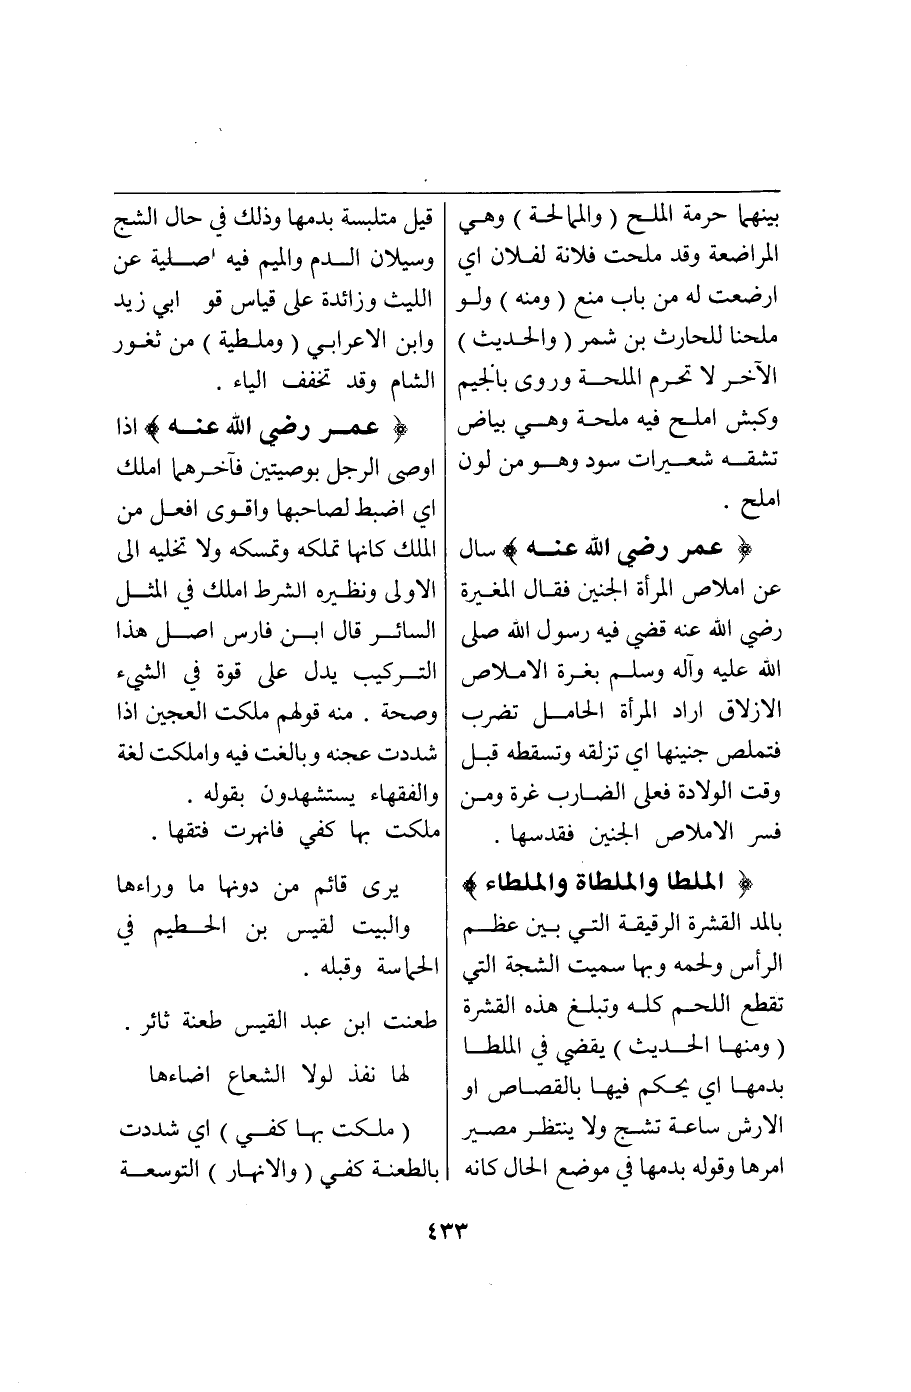 بينهما حرمة الملح ( والممالحة ) وهي
المراضعة وقد ملحت فلانة لفلان اي
ارضعت له من باب منع ( ومنه ) ولو
ملحنا للحارث بن شمر ( والحديث )
الآخر لا تحرم الملحة وروى بالجيم
وكبش املح فيه ملحة وهي بياض
تشقه شعيرات سود وهو من لون
املح .
﴿ عمر رضي الله عنه ﴾ سال
عن املاص المرأة الجنين فقال المغيرة
رضي الله عنه قضي فيه رسول الله صلى
الله عليه وآله وسلم بغرة الاملاص
الازلاق اراد المرأة الحامل تضرب
فتملص جنينها اي تزلقه وتسقطه قبل
وقت الولادة فعلى الضارب غرة ومن
فسر الاملاص الجنين فقدسها .
﴿ الملطا والملطاة والملطاء ﴾
بالمد القشرة الرقيقة التي بين عظم
الرأس ولحمه وبها سميت الشجة التي
تقطع اللحم كله وتبلغ هذه القشرة
( ومنها الحديث ) يقضي في الملطا
بدمها اي يحكم فيها بالقصاص او
الارش ساعة تشج ولا ينتظر مصير
امرها وقوله بدمها في موضع الحال كانه
قيل متلبسة بدمها وذلك في حال الشج
وسيلان الدم والميم فيه اصلية عن
الليث وزائدة على قياس قو ابي زيد
وابن الاعرابي ( وملطية ) من ثغور
الشام وقد تخفف الياء .
﴿ عمر رضي الله عنه ﴾ اذا
اوصى الرجل بوصيتين فآخرهما املك
اي اضبط لصاحبها واقوى افعل من
الملك كانها تملكه وتمسكه ولا تخليه الى
الاولى ونظيره الشرط املك في المثل
السائر قال ابن فارس اصل هذا
التركيب يدل على قوة في الشيء
وصحة . منه قولهم ملكت العجين اذا
شددت عجنه وبالغت فيه واملكت لغة
والفقهاء يستشهدون بقوله .
ملكت بها كفي فانهرت فتقها .
يرى قائم من دونها ما وراءها
والبيت لقيس بن الحطيم في
الحماسة وقبله .
طعنت ابن عبد القيس طعنة ثائر .
لها نفذ لولا الشعاع اضاءها
( ملكت بها كفي ) اي شددت
بالطعنة كفي ( والانهار ) التوسعة
٤٣٣